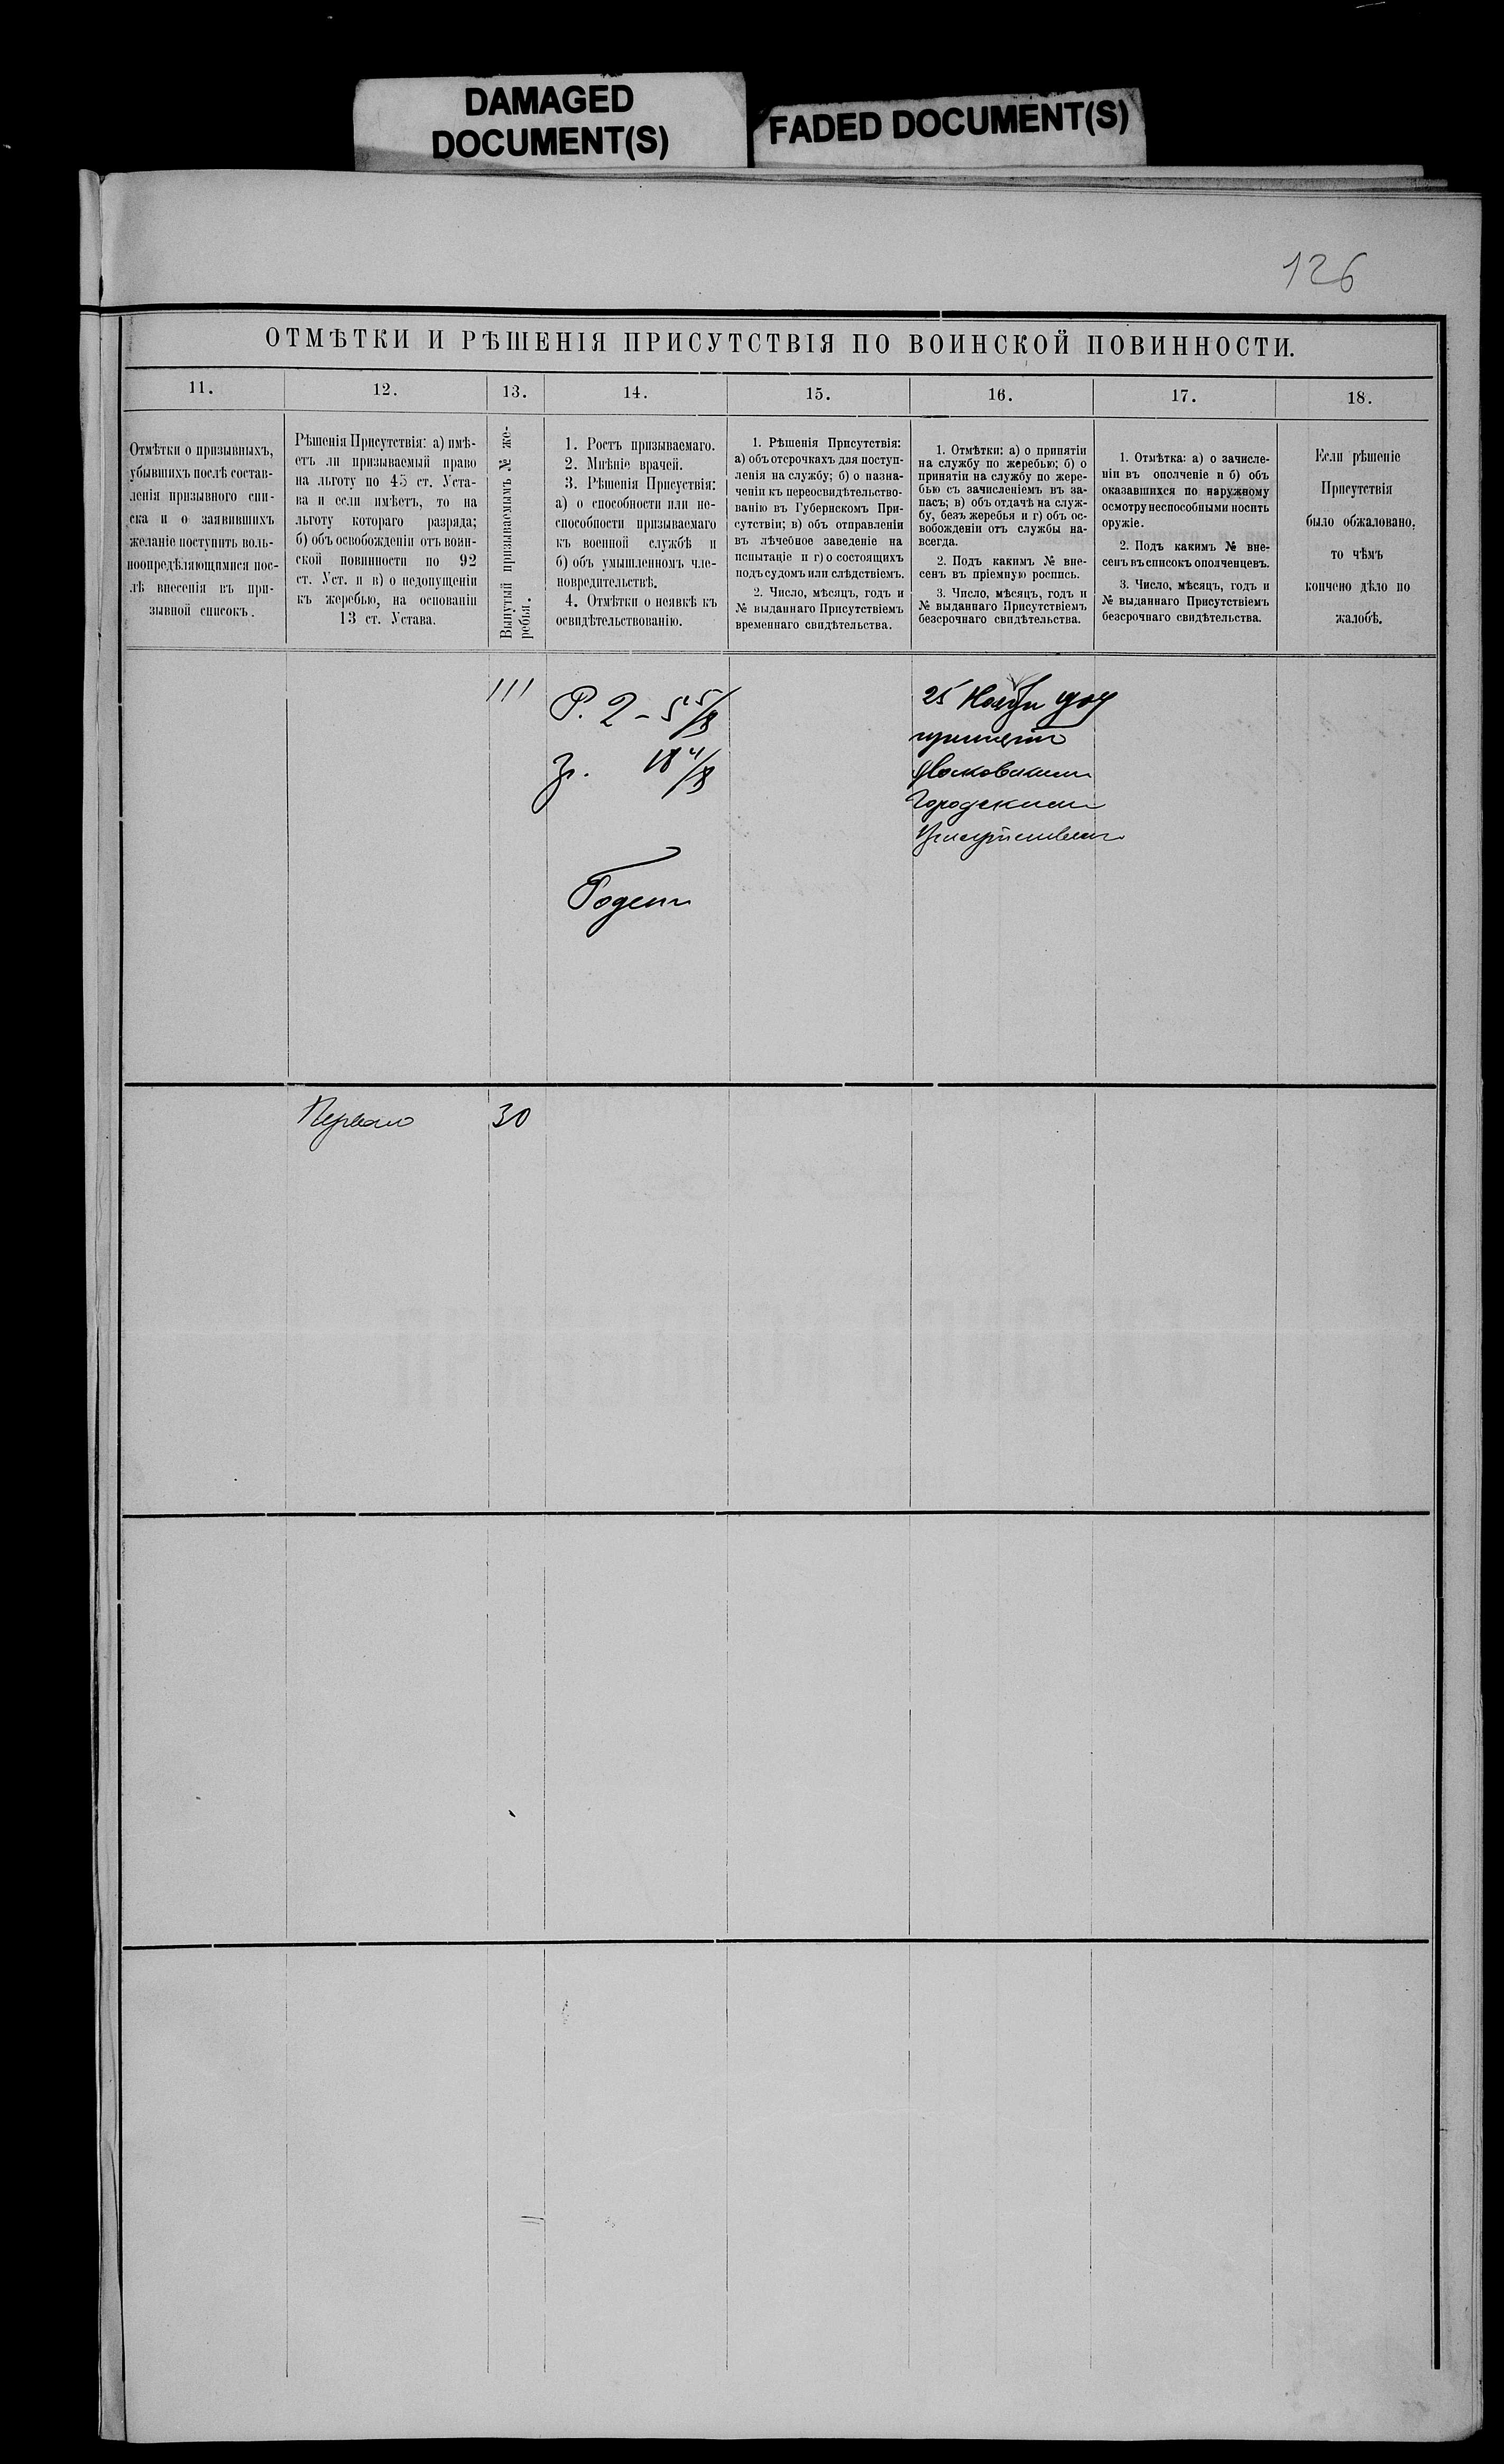 DAMAGED
DOCUMENT(S)
FADED DOCUMENT(S)
126
ОТМѢТКИ И РѢШЕНІЯ ПРИСУТСТВІЯ ПО ВОИНСКОЙ ПОВИННОСТИ.
11.
12.
13.
14.
15.
16.
17.
18.
Отмѣтки о призывныхъ,
убывшихъ послѣ состав-
ленія призывного спи-
ска и о заявившихъ
желаніе поступить воль-
ноопредѣляющимися пос-
лѣ внесенія въ при-
зывной списокъ.
Рѣшенія Присутствія: а) имѣ-
етъ ли призываемый право
на льготу по 45 ст. Уста-
ва и если имѣетъ, то на
льготу котораго разряда;
б) объ освобожденіи отъ воин-
ской повинности по 92
ст. Уст. и в) о недопущеніи
къ жеребью, на основаніи
13 ст. Устава.
Вынутый призываемымъ № же-
ребья.
1. Ростъ призываемаго.
2. Мнѣніе врачей.
3. Рѣшенія Присуствія:
а) о способности или не-
способности призываемаго
къ военной службѣ и
б) объ умышленномъ чле-
новредительствѣ.
4. Отмѣтки о неявкѣ къ
освидѣтельствованію.
1. Рѣшенія Присутствія:
а) объ отсрочкахъ для поступ-
ленія на службу; б) о назна-
ченіи къ переосвидѣтельство-
ванію въ Губернскомъ При-
сутствіи; в) объ отправленіи
въ лѣчебное заведеніе на
испытаніе и г) о состоящихъ
подъ судомъ или слѣдствіемъ.
2. Число, мѣсяцъ, годъ и
№ выданнаго Присутствіемъ
временнаго свидѣтельства.
1. Отмѣтки: а) о принятіи
на службу по жеребью; б) о
принятіи на службу по жере-
бью съ зачисленіемъ въ за-
пасъ; в) объ отдачѣ на служ-
бу, безъ жеребья и г) объ ос-
вобожденіи отъ службы на-
всегда.
2. Подъ какимъ № вне-
сенъ въ пріемную роспись.
3. Число, мѣсяцъ, годъ и
№ выданнаго Присутствіемъ
безсрочнаго свидѣтельства.
1. Отмѣтка: а) о зачисле-
ніи въ ополченіе и б) объ
оказавшихся по наружному
осмотру неспособными носить
оружіе.
2. Подъ какимъ № вне-
сенъ въ списокъ ополченцевъ.
3. Число, мѣсяцъ, годъ и
№ выданнаго Присутствіемъ
безсрочнаго свидѣтельства.
Если рѣшеніе
Присутствія
было обжаловано,
то чѣмъ
кончено дѣло по
жалобѣ.
111
Р. 2 - 5 5/8
Зр. 18 4/8
Годенъ
25 Ноября 904
принятъ
Московскимъ
Городскимъ
Присутствіемъ
Перваго
30